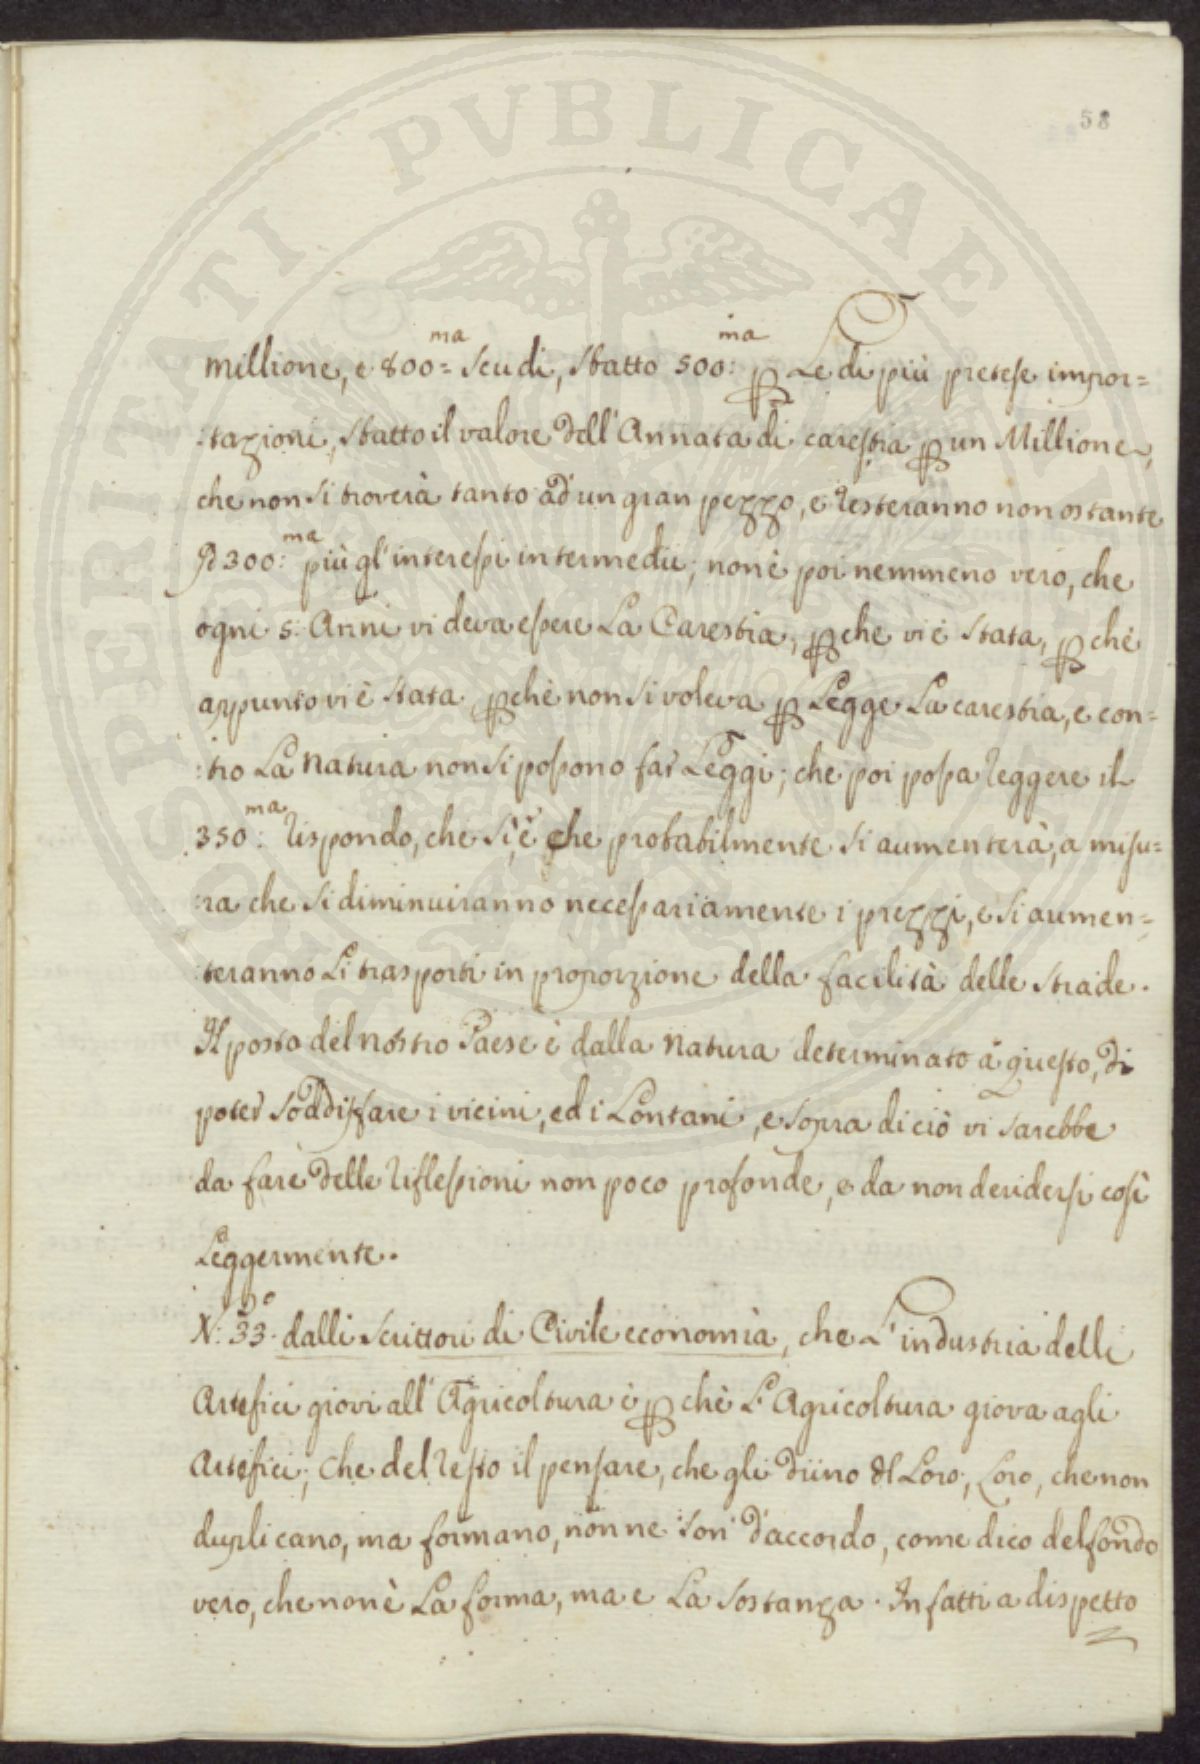 PROSPERITATI PVBLICAE
58
millione, e 800=ma Scudi, sbatto 500:ma p Le di più pretese impor=
:tazioni, sbatto il valore dell'Annata di carestia p un Millione,
che non si troverà tanto ad un gran pezzo, e resteranno non ostante
300:ma più gl'interessi intermedii; non è poi nemmeno vero, che
ogni 5. Anni vi deva essere La Carestia, pche vi è stata, pchè
appunto vi è stata pchè non si voleva p Legge La carestia, e con=
:tro La natura non si possono far Leggi; che poi possa reggere il
350:ma rispondo, che sì, è che probabilmente si aumenterà, a misu=
:ra che si diminuiranno necessariamente i prezzi, e si aumen=
:teranno Li trasporti in proporzione della facilità delle strade.
Il posto del nostro Paese è dalla natura determinato a questo, di
poter soddisfare i vicini, ed i Lontani, e sopra di ciò vi sarebbe
da fare delle riflessioni non poco profonde, e da non deridersi così
Leggermente.
N: 33.o dalli Scrittori di Civile economia, che L'industria delli
Artefici giovi all'Agricoltura è pchè L'Agricoltura giova agli
Artefici; che del resto il pensare, che gli diino del Loro, Loro, che non
duplicano, ma formano, non ne son d'accordo, come dico del fondo
vero, che non è La forma, ma e La sostanza. Infatti a dispetto